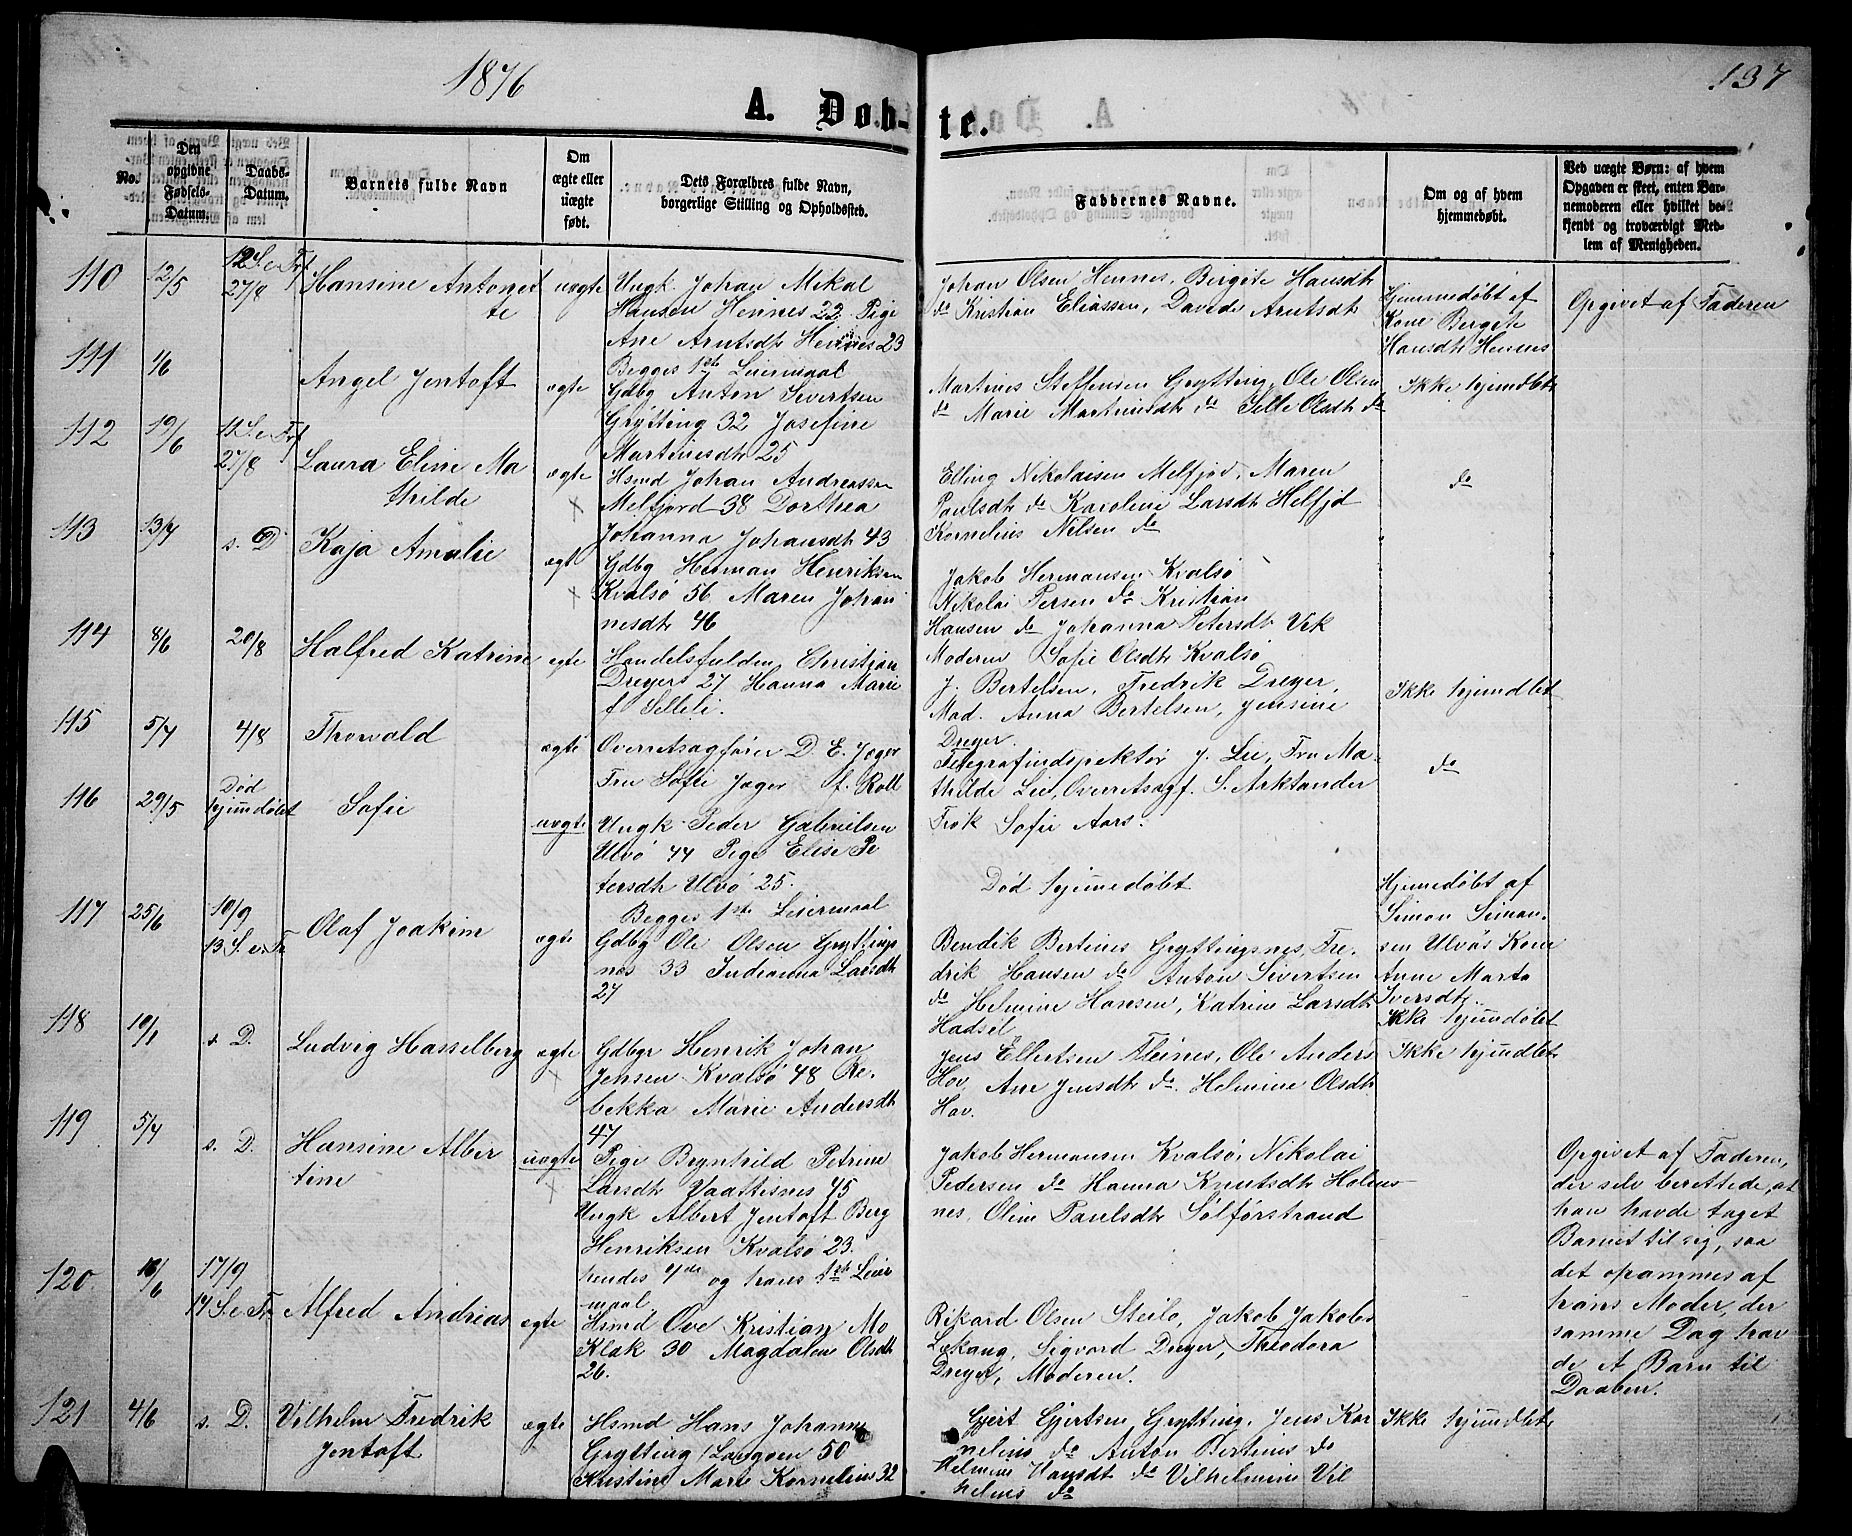 1876
137
A. Døb-te.
No.
Den opgivne Fødsels-Datum.
Daabs-Datum.
Barnets fulde Navn
Om ægte eller uægte født.
Dets Forældres fulde Navn, borgerlige Stilling og Opholdssted.
Faddernes Navne.
Om og af hvem hjemmedøbt.
Ved uægte Børn: af hvem Opgaven er skeet, enten Barnemoderen eller hvilket bekjendt og troværdigt Medlem af Menigheden.
110 12/5 12 S. e. Trf 27/8 Hansine Antonette uægte
Ungk. Johan Mikal
Hansen Hennes 22 Pige
Ane Arntsdtr Hennes 23
Begges 1ste Leiermaal
Johan Olsen Hennes, Birgite Hansdtr
do Kristian Eliassen, Davida Arntsdtr
Hjemmedøbt af
Kone Bergete
Hansdtr Hennes
Opgivet af Faderen
111 1/6 Angel Jentoft ægte
Gdbg Anton Sivertsen
Grytting 32 Josefine
Martinesdtr 25
Martines Steffensen Grytting, Ole Olsen
do Marie Martinusdtr do Sille Olsdtr do
Ikke hjemdbt
112 19/6 11 S. e. Trf 27/8 Laura Eline Mathilde ægte
Hsmd Johan Andreassen
Melfjord 38 Dorthea
Johanna Johansdtr 43
Elling Nikolaisen Melfjod, Maren
Paulsdtr do Karoline Larsdtr Melfjd
Kornelius Nilsen do
do
113 13/7 s. D. Kaja Amalie ægt
Gdbg Herman Henriksen
Kvalsø 56 Maren Johannesdtr 46
Jakob Hermansen Kvalsø
Nikolai Persen do Kristian
Hansen do Johanna Petersdtr Vik
Moderen Sofie Olsdtr Kvalsø
114 8/6 20/8 Halfred Katrine egte
Handelsfuldm. Christian
Dreyers 27 Hanna Marie
f Selleli.
J. Bertelsen, Fredrik Dreyer,
Mad. Anna Bertelsen, Jensine
Dreyer.
Ikke hjemdbt
115 5/7 4/8 Thorvald ægte
Overretsagfører D. E. Jager
Fru Sofie Jager f. Roll
Telegrafindspektør J. Lie, Fru Mathilde Lie, Overretsagf. S. Arktander
Frøk Sofie Aars.
do
116 29/5 Død hjemdøbt Sofie uægte
Ungk Peder Gabrielsen
Ulvø 44 Pige Elise Petersdtr Ulvø 25.
Begges 1ste Leiermaal
Død hjemmedøbt
Hjemedøbt af
Simon Simonsen Ulvøs Kone
Anne Marta
Iversdtr.
117 25/6 10/9 13 S. e. Tr. Olaf Joakim ægte
Gdbg Ole Olsen Gryttingsnes 33 Indianna Larsdtr
27
Bendik Bertines Gryttingsnes, Fredrik Hansen do Anton Sivertsen
do Helmine Hansen, Katrine Larsdtr
Hadsel
Ikke hjemdøbt
118 10/1 s. D. Ludvig Hasselberg ægte
Gdbgr Henrik Johan
Jensen Kvalsø 48 Rebekka Marie Andersdtr
47
Jens Ellertsen Fleines, Ole Anders
Hov, Ane Jensdtr do. Helmine Olsdtr
Hov.
Ikke hjemdbt
119 5/7 s. D. Hansine Albertine uægte
Pige Brynhild Petrine
Larsdtr Vaattisnes 45
Ungk Albert Jentoft Berg
Henriksen Kvalsø 23.
hendes 4de og hans 1ste Leiermaal
Jakob Hermansen Kvalsø, Nikolai
Pedersen do Hanna Knutsdtr Holmsnes, Oline Paulsdtr Sølførstrand
Opgivet af Faderen,
der selv berettede, at
han havde taget
Barnet til sig, saa
det opammes af
hans Moder, der
samme Dag havde et Barn til
Daaben.
120. 10/6 17/9 14 S. e. Tr. Alfred Andrias egte
Hsmd Ove Kristian Mo
Klak 30 Magdalene Olsdtr
26.
Rikard Olsen Steilo, Jakob Jakobs
Lekang, Sigvard Dreyer, Theodora
Dreyer, Moderen.
121 4/6 s. D. Vilhelm Fredrik Jentoft ægte
Hsmd Hans Johannes
Grytting / Langøen 50
Kristine Marie Kornelius 32
Gjert Gjertsen Grytting, Jens Kornelius do Anton Bertinus do
Helmine Hansdt do Vilhelmine Vilhelms do
Ikke hjemdbt